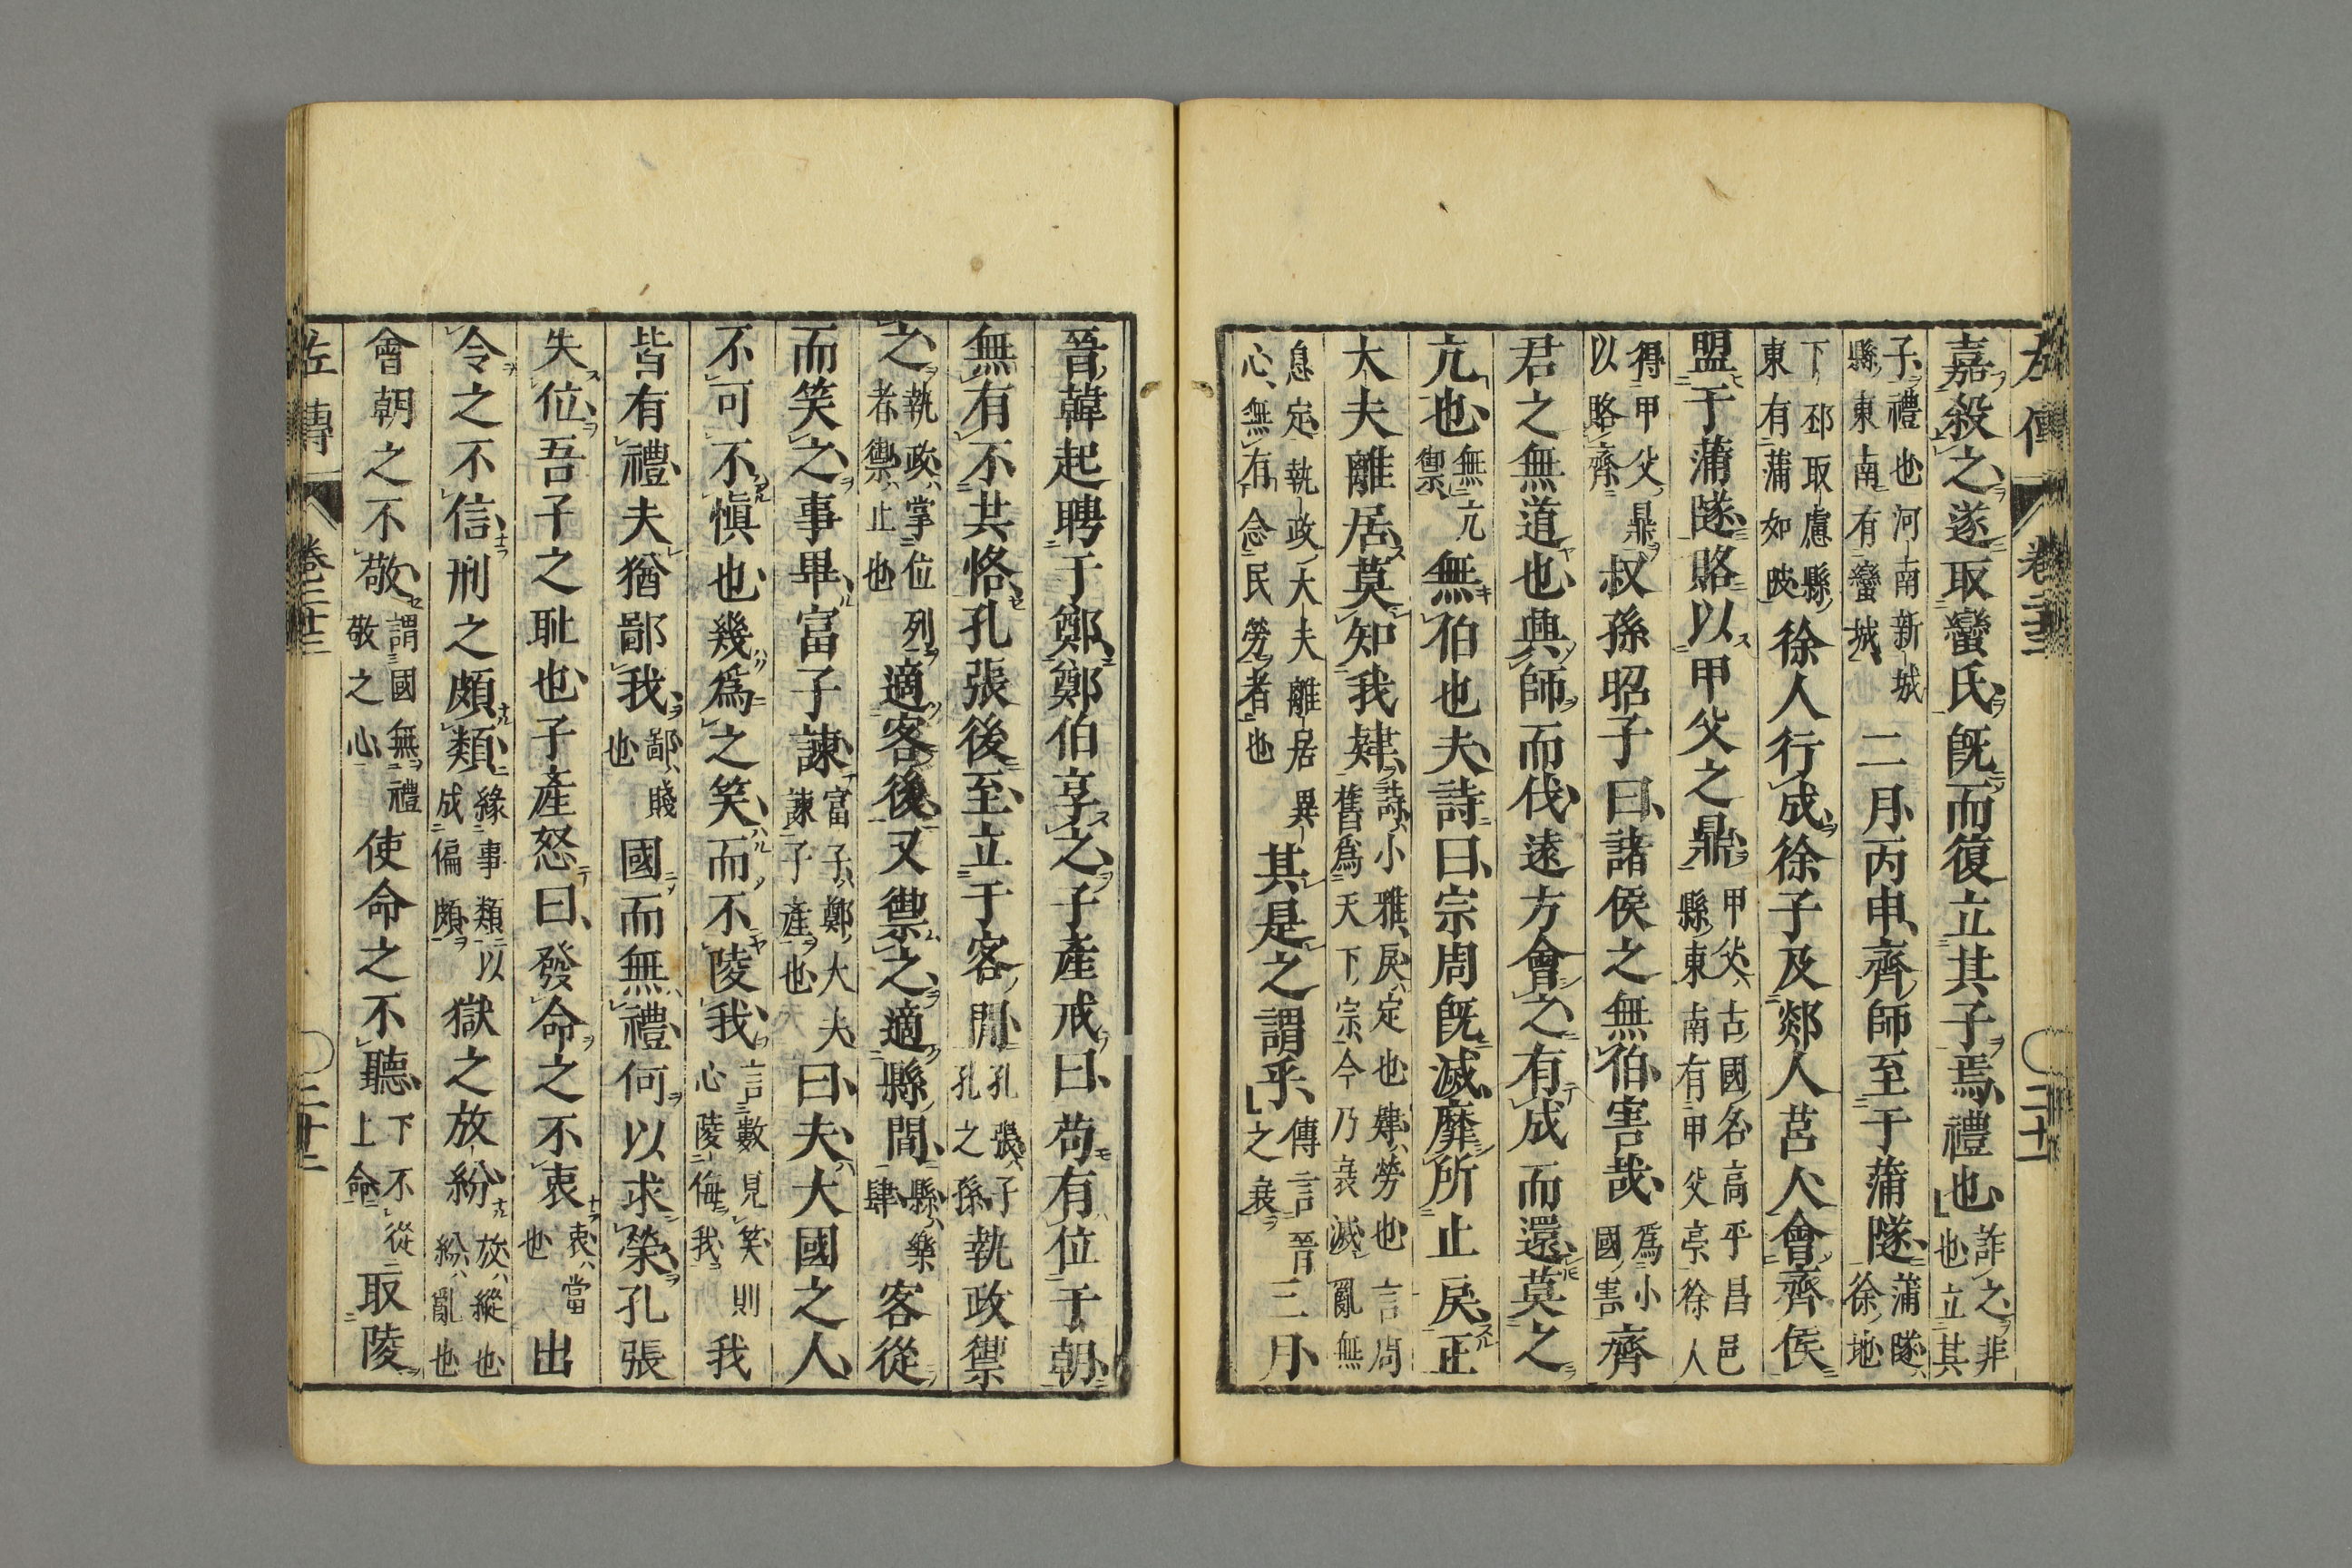 左傳 卷二十三 二十一
嘉殺之遂取蠻氏既而復立其子焉禮也詐之非也立其
子禮也河南新城縣東南有蠻城二月丙申齊師至于蒲隧蒲隧徐地
下邳取慮縣東有蒲如陂徐人行成徐子及郯人莒人會齊侯
盟于蒲隧賂以甲父之鼎甲父古國名高平昌邑縣東南有甲父亭徐人
得甲父鼎以賂齊叔孫昭子曰諸侯之無伯害哉為小國害齊
君之無道也興師而伐遠方會之有成而還莫之
亢也無亢禦無伯也夫詩曰宗周既滅靡所止戾正
大夫離居莫知我肄詩小雅戾定也肄勞也言周舊爲天下宗今乃衰滅亂無
息定執政大夫離居異心無有念民勞者也其是之謂乎傳言晉之衰三月
晉韓起聘于鄭鄭伯享之子產戒曰苟有位于朝
無有不共恪孔張後至立于客閒孔張子孔之孫執政禦
之執政掌位列者禦止也適客後又禦之適縣間縣樂肆客從
而笑之事畢富子諫富子鄭大夫諫子產也曰夫大國之人
不可不愼也幾爲之笑而不陵我言數見笑則心陵侮我我
皆有禮夫猶鄙我鄙賤也國而無禮何以求榮孔張
失位吾子之恥也子產怒曰發命之不衷衷當也出
令之不信刑之頗類緣事類以成偏頗獄之放紛放縱也紛亂也
會朝之不敬謂國無禮敬之心使命之不聽下不從上命取陵
左傳 卷二十三 二十二